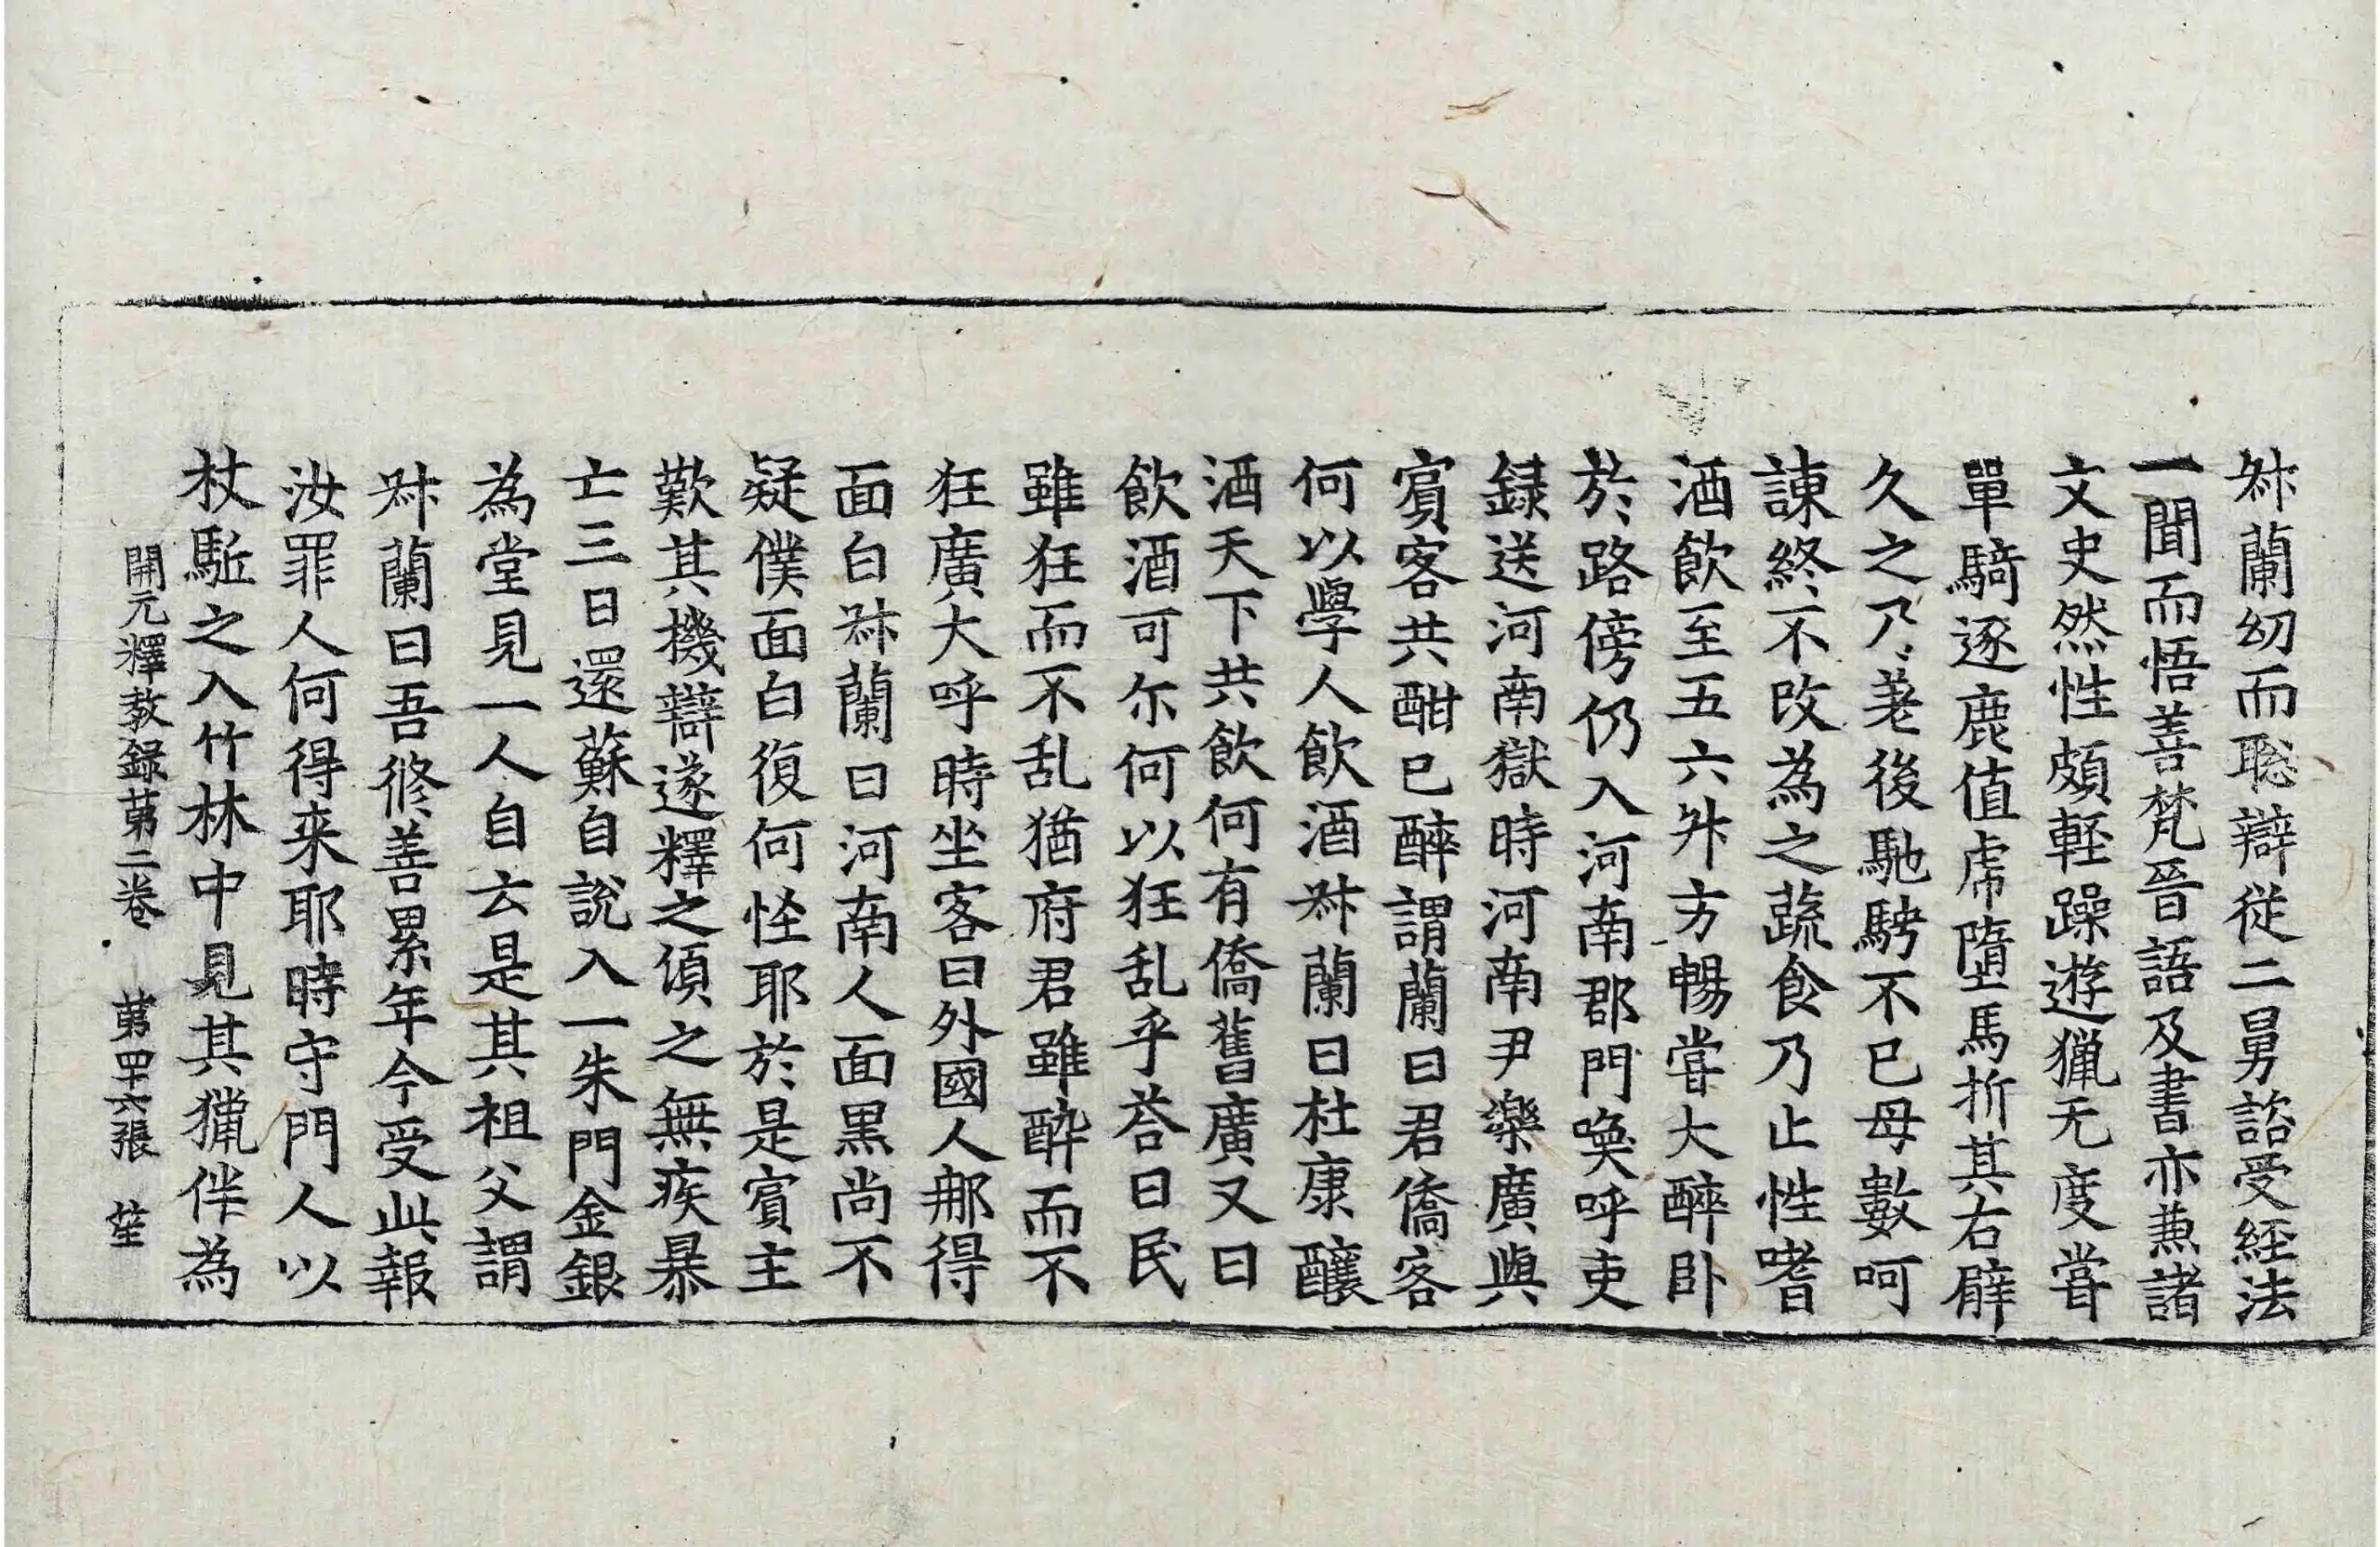 叔蘭幼而聡辯從二舅諮受経法
一聞而悟善梵晉語及書亦兼諸
文史然性頗軽躁遊猟无度甞
單騎逐鹿值虎墮馬折其右臂
久之乃差後馳騁不已母數呵
諫終不改為之蔬食乃止性嗜
酒飲至五六升方暢甞大醉卧
於路傍仍入河南郡門喚呼吏
録送河南獄時河南尹樂廣與
賓客共酣已醉謂蘭曰君僑客
何以學人飲酒叔蘭曰杜康釀
酒天下共飲何有僑舊廣又曰
飲酒可尓何以狂乱乎荅曰民
雖狂而不乱猶府君雖醉而不
狂廣大呼時坐客曰外國人那得
面白叔蘭曰河南人面黒尚不
疑僕面白復何怪耶於是賓主
歎其機辯遂釋之頃之無疾暴
亡三日還蘇自說入一朱門金銀
為堂見一人自云是其祖父謂
叔蘭曰吾修善累年今受此報
汝罪人何得来耶時守門人以
杖駈之入竹林中見其獵伴為
開元釋教録苐二巻 苐四十六張 笙